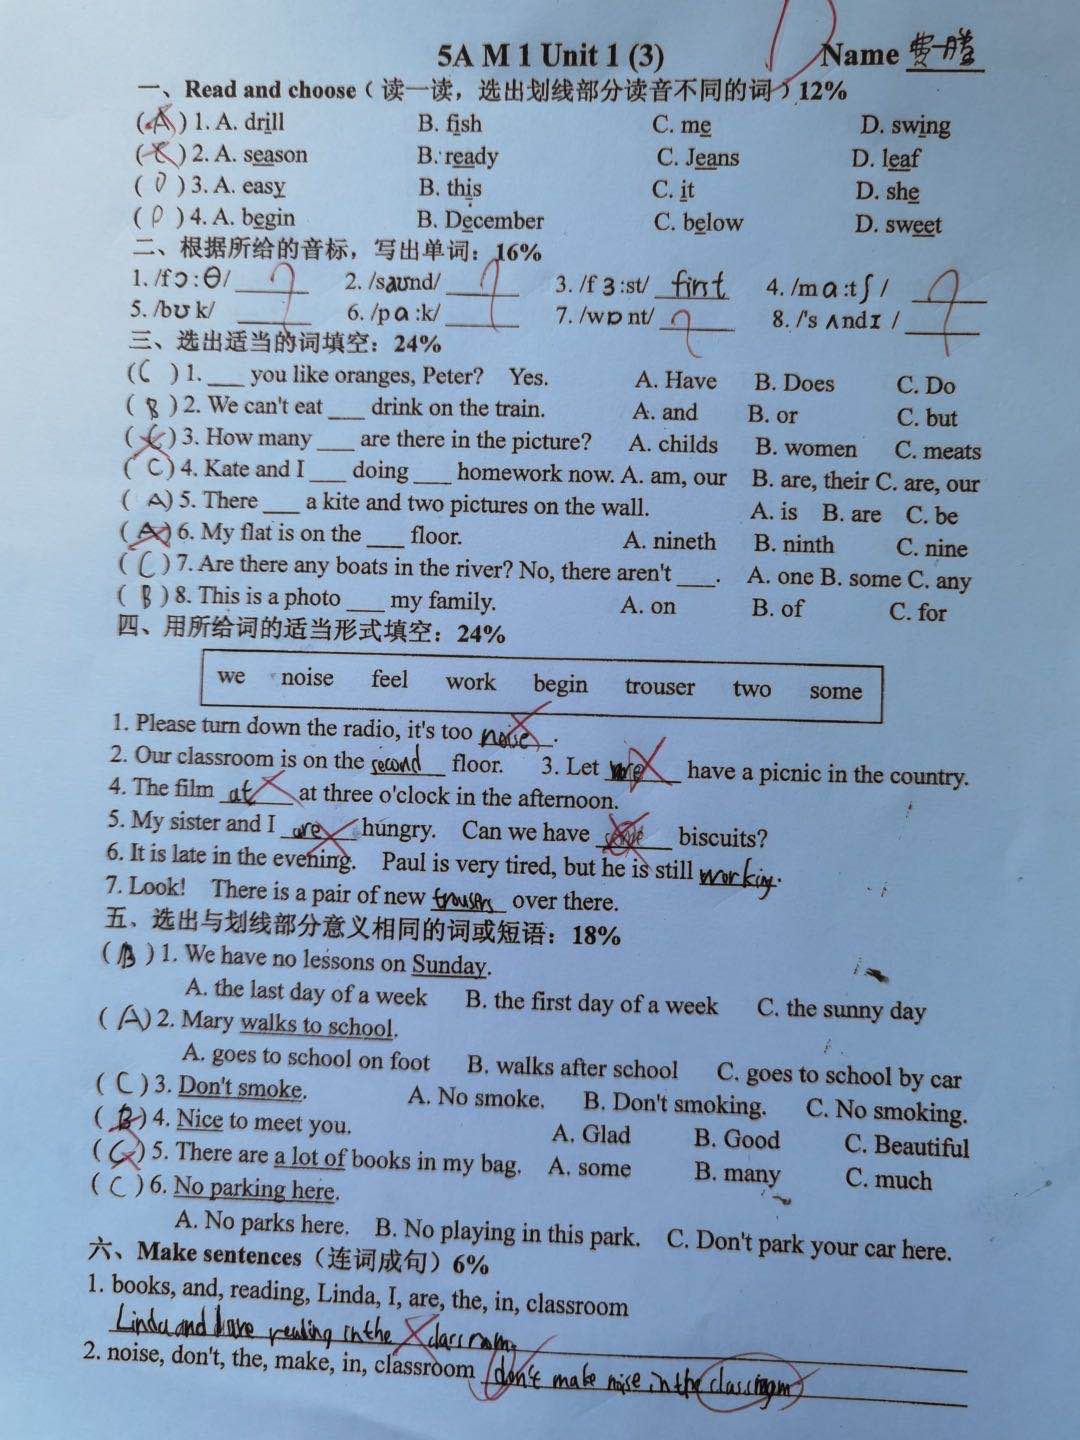 5A M 1 Unit 1 (3) Name 费一腾
一、Read and choose（读一读，选出划线部分读音不同的词）12%
( A ) 1. A. drill B. fish C. me D. swing
( C ) 2. A. season B. ready C. Jeans D. leaf
( D ) 3. A. easy B. this C. it D. she
( D ) 4. A. begin B. December C. below D. sweet
二、根据所给的音标，写出单词：16%
1. /fɔ:θ/ ______ 2. /saʊnd/ ______ 3. /fɜ:st/ first 4. /mɑ:tʃ/ ______
5. /bʊk/ ______ 6. /pɑ:k/ ______ 7. /wɒnt/ ______ 8. /'sʌndɪ/ ______
三、选出适当的词填空：24%
( C ) 1. ___ you like oranges, Peter? Yes. A. Have B. Does C. Do
( B ) 2. We can't eat ___ drink on the train. A. and B. or C. but
( C ) 3. How many ___ are there in the picture? A. childs B. women C. meats
( C ) 4. Kate and I ___ doing ___ homework now. A. am, our B. are, their C. are, our
( A ) 5. There ___ a kite and two pictures on the wall. A. is B. are C. be
( A ) 6. My flat is on the ___ floor. A. nineth B. ninth C. nine
( C ) 7. Are there any boats in the river? No, there aren't ___. A. one B. some C. any
( B ) 8. This is a photo ___ my family. A. on B. of C. for
四、用所给词的适当形式填空：24%
we noise feel work begin trouser two some
1. Please turn down the radio, it's too noise.
2. Our classroom is on the second floor. 3. Let have a picnic in the country.
4. The film at at three o'clock in the afternoon.
5. My sister and I are hungry. Can we have some biscuits?
6. It is late in the evening. Paul is very tired, but he is still working.
7. Look! There is a pair of new trousers over there.
五、选出与划线部分意义相同的词或短语：18%
( B ) 1. We have no lessons on Sunday.
A. the last day of a week B. the first day of a week C. the sunny day
( A ) 2. Mary walks to school.
A. goes to school on foot B. walks after school C. goes to school by car
( C ) 3. Don't smoke. A. No smoke. B. Don't smoking. C. No smoking.
( B ) 4. Nice to meet you. A. Glad B. Good C. Beautiful
( C ) 5. There are a lot of books in my bag. A. some B. many C. much
( C ) 6. No parking here.
A. No parks here. B. No playing in this park. C. Don't park your car here.
六、Make sentences（连词成句）6%
1. books, and, reading, Linda, I, are, the, in, classroom
Linda and I are reading in the classroom.
2. noise, don't, the, make, in, classroom don't make noise in the classroom